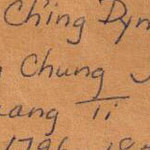 Ching Dyn
Chung
uang Ti
1796